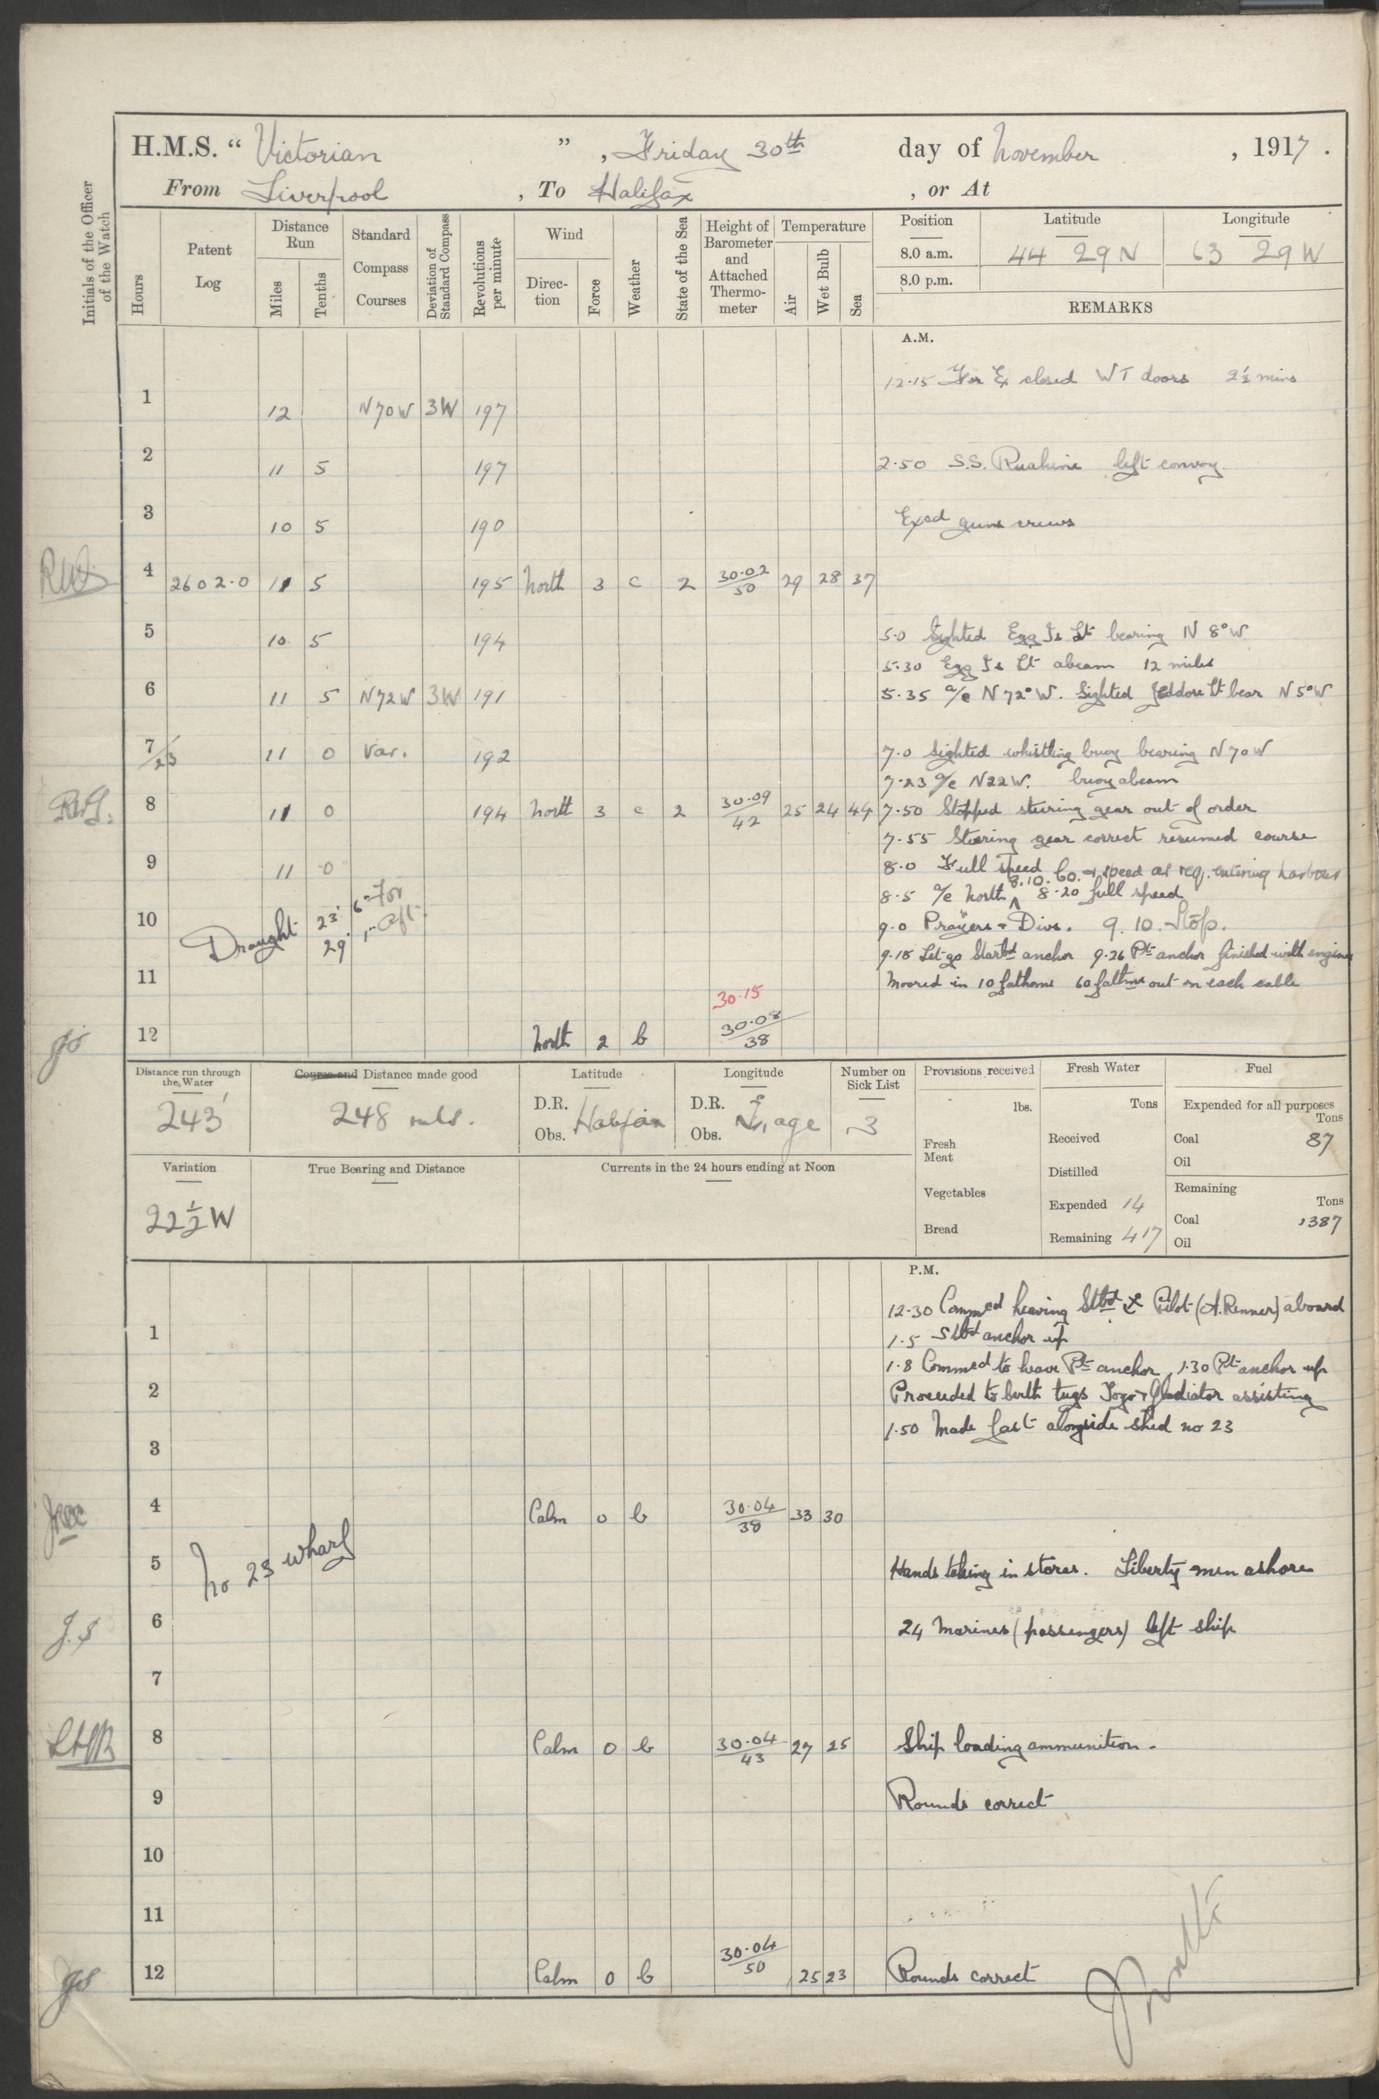 H.M.S. “ Victorian ” , Friday 30th day of November , 1917 .
From Liverpool , To Halifax , or At
Initials of the Officer of the Watch
Hours
Patent Log
Distance Run
Miles
Tenths
Standard Compass Courses
Deviation of Standard Compass
Revolutions per minute
Wind
Direction
Force
Weather
State of the Sea
Height of Barometer and Attached Thermometer
Temperature
Air
Wet Bulb
Sea
Position Latitude Longitude
8.0 a.m. 44 29 N 63 29 W
8.0 p.m.
REMARKS
A.M.
12.15 For Ex closed WT doors 2½ mins
1 12 N70W 3W 197
2 11 5 197 2.50 S.S. Ruahine left convoy
3 10 5 190 Exed guns crews
4 2602.0 11 5 195 North 3 c 2 30.02/50 29 28 37
5 10 5 194 5.0 Sighted Egg Is Lt bearing N 8° W
5.30 Egg Is Lt abeam 12 miles
6 11 5 N72W 3W 191 5.35 a/c N 72° W. Sighted Jeddore Lt bear N 5° W
7/23 11 0 Var. 192 7.0 Sighted whistling buoy bearing N70W
7.23 a/c N22W. buoy abeam
8 11 0 194 North 3 c 2 30.09/42 25 24 44 7.50 Stopped steering gear out of order
7.55 Steering gear correct resumed course
9 11 0 8.0 Full speed & speed as req. entering harbour
8.5 a/c North 8.10. 60. 8.20 full speed
10 Draught 23' 6" For 29' 1" Aft. 9.0 Prayers + Divs. 9.10. Stop.
9.15 Let go Starbd anchor 9.26 Pt anchor finished with engines
11 Moored in 10 fathoms 60 fathms out on each cable
30.15
12 North 2 b 30.08/38
Distance run through the Water
243'
Course and Distance made good
248 mls.
Latitude
D.R. Halifax
Obs.
Longitude
D.R.
Obs.
Number on Sick List
3
Provisions received
lbs.
Fresh Meat
Vegetables
Bread
Fresh Water
Tons
Received
Distilled
Expended 14
Remaining 417
Fuel
Expended for all purposes
Tons
Coal 87
Oil
Remaining
Tons
Coal 1387
Oil
Variation
22½ W
True Bearing and Distance
Currents in the 24 hours ending at Noon
P.M.
12.30 Commed heaving Stbd & Pilot (A. Renner) aboard
1 1.5 Stbd anchor up
1.8 Commed to heave Pt anchor 1.30 Pt anchor up
2 Proceeded to berth tugs Togo + Gladiator assisting
1.50 Made fast alongside shed no 23
3
4 Calm 0 b 30.04/38 33 30
No 23 wharf
5 Hands taking in stores. Liberty men ashore
6 J.S 24 Marines (passengers) left ship
7
8 Calm 0 b 30.04/43 27 25 Ship loading ammunition.
9 Rounds correct
10
11
12 JS Calm 0 b 30.04/50 25 23 Rounds correct